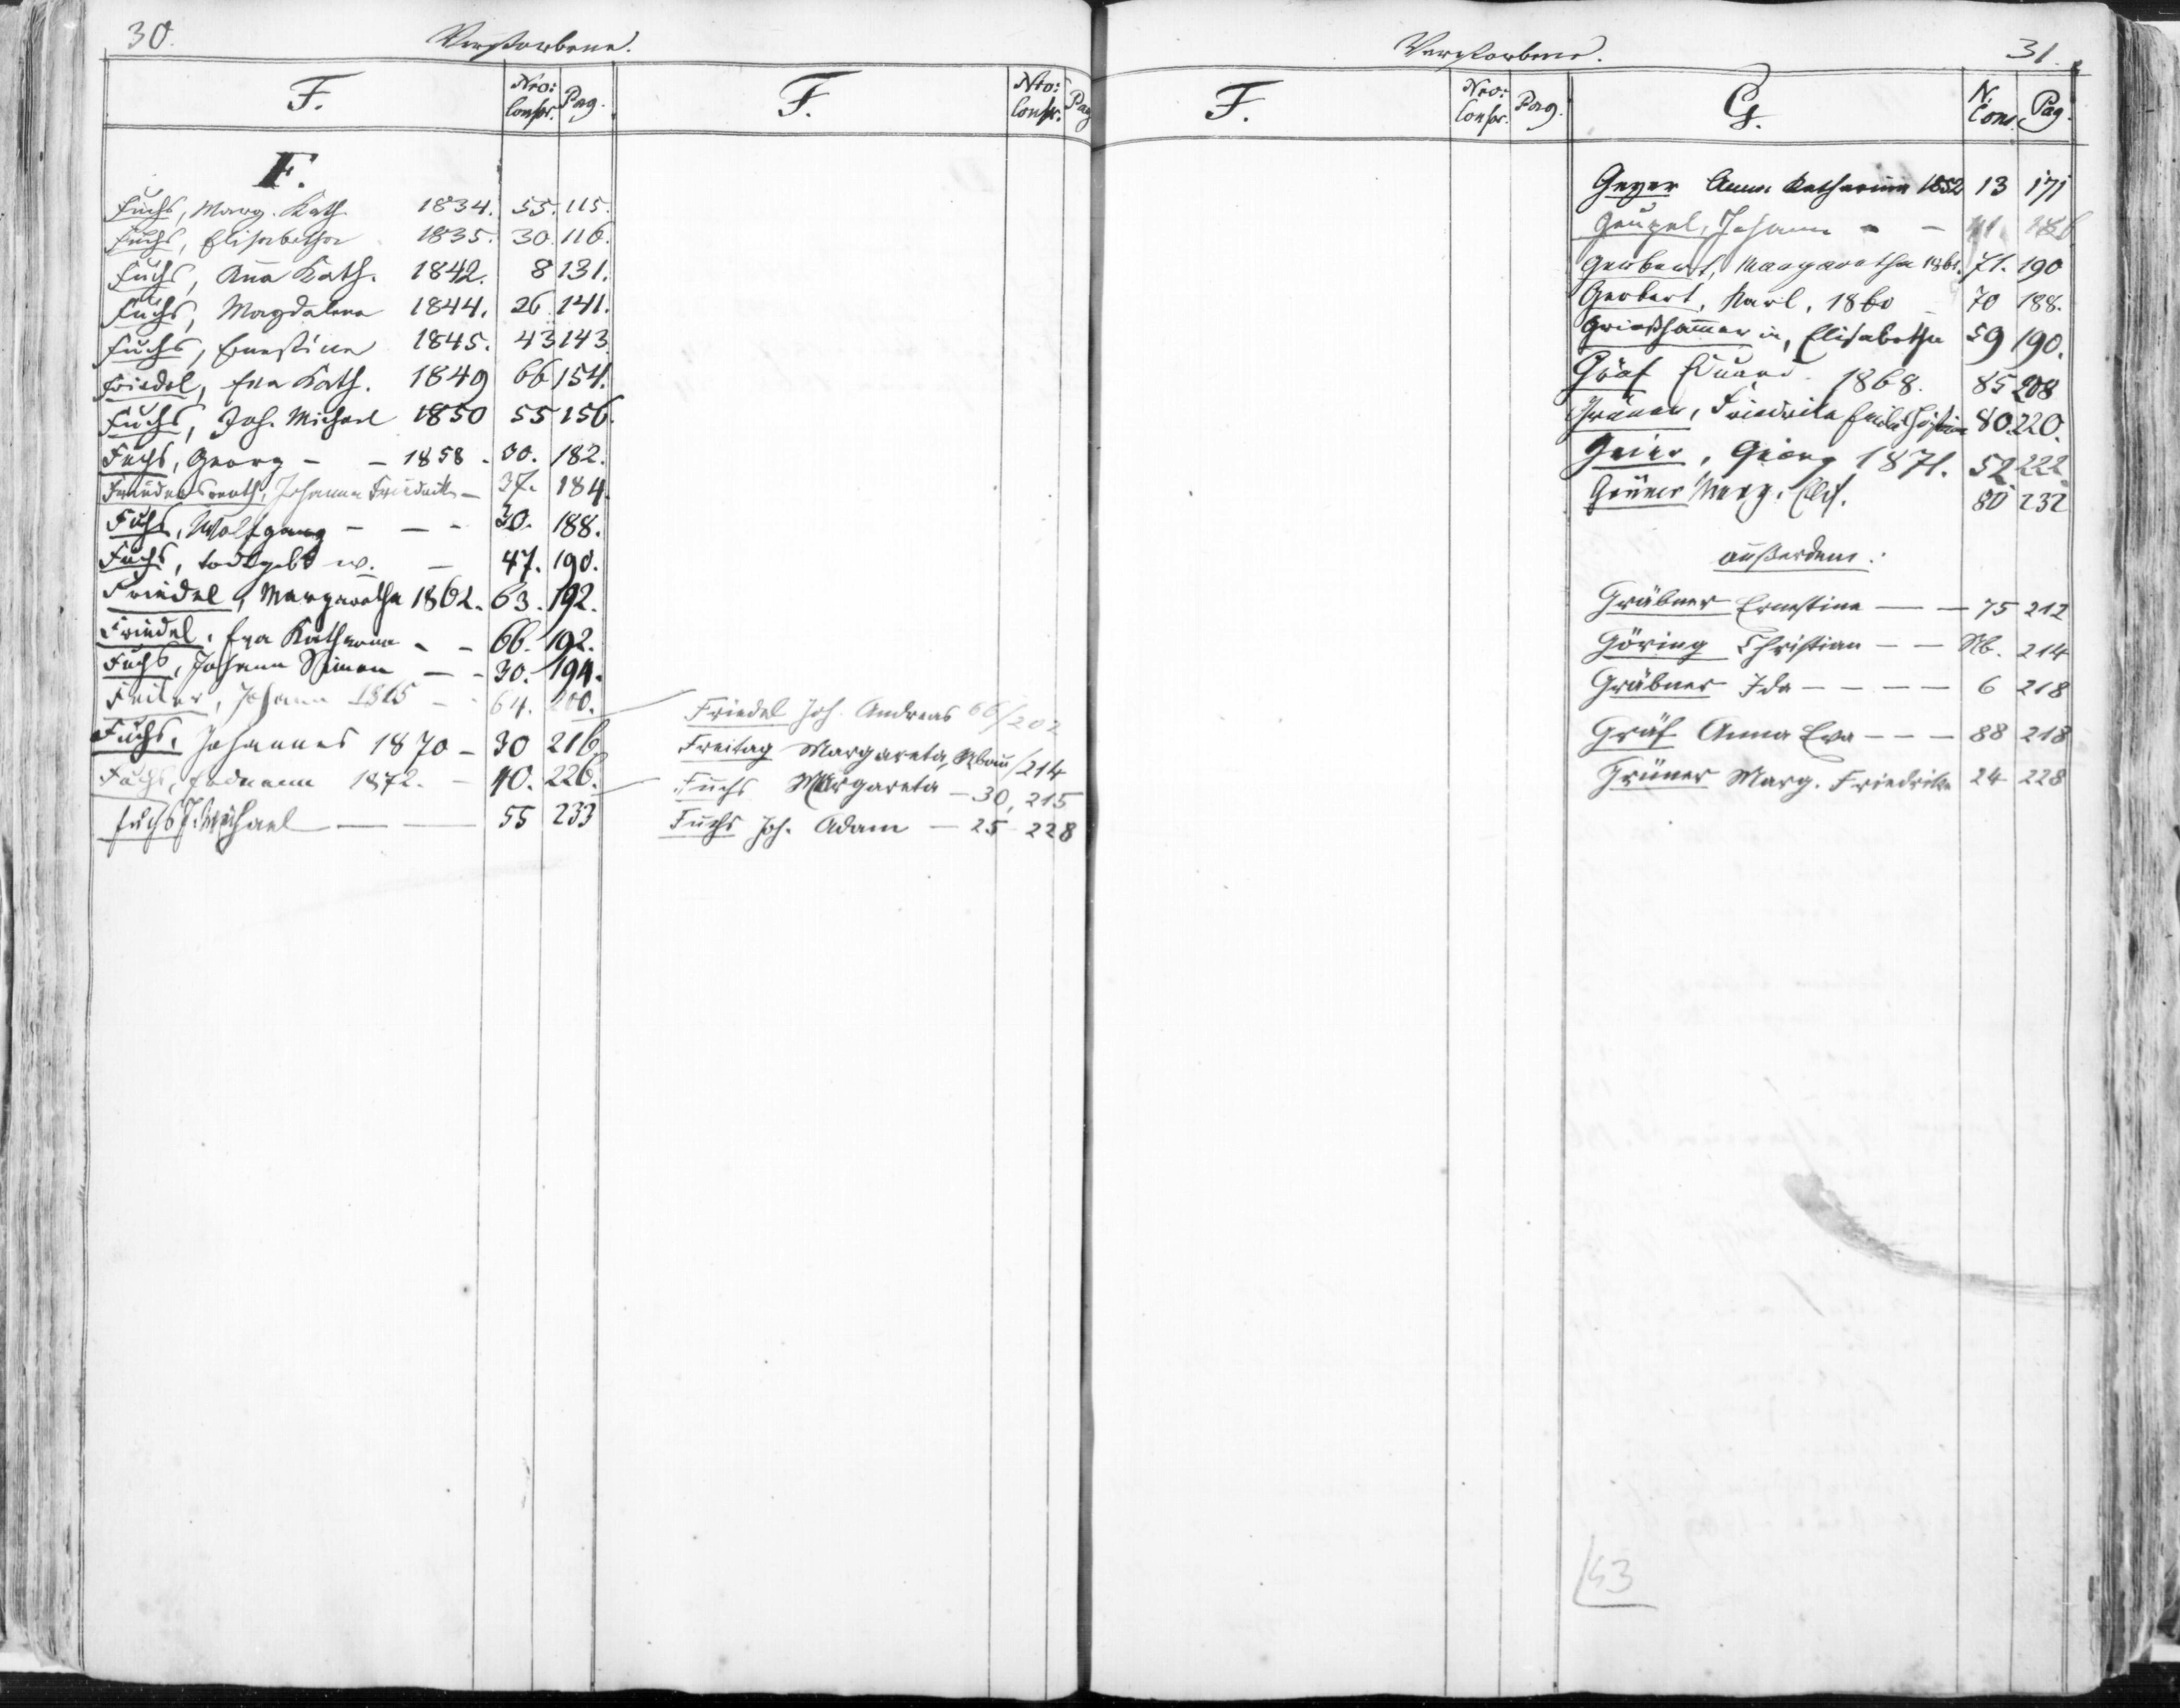 30.
Verstorbene.
F.
Nro: Conscr.
Pag.
F.
Nro: Conscr.
Pag
F.
Fuchs, Marg. Kath. 1834. 55. 115.
Fuchs, Elisabetha 1835. 30. 116.
Fuchs, Anna Kath. 1842. 8 131.
Fuchs, Magdalena 1844. 26. 141.
Fuchs, Ernestine 1845. 43 143.
Friedel, Eva Kath. 1849 66 154.
Fuchs, Joh. Michael 1850 55 156.
Fuchs, Georg – – 1858. 30. 182.
Johanna – 37. 184.
Fuchs, Wolfgang – – – 30. 188.
Fuchs, todtgeb. w. – 47. 190.
Friedel, Margaretha 1862. 63. 192.
Friedel, Eva Katharina – – 66. 192.
Fuchs, Johann Simon – – 30. 194.
Johann 1865 – 64. 200.
Fuchs, Johannes 1870 – 30 216.
Fuchs, 1872. – 40. 226.
Fuchs J. Michael — — 55 233
Friedel Joh. Andreas 66/202
Freitag Margareta, /214
Fuchs Margareta – 30, 215
Fuchs Joh. Adam – 25 228
Verstorbene.
31.
F.
Nro: Conscr.
Pag.
G.
N. Cons.
Pag.
Geyer Anna Katharina 1852 13 171
Geupel, Johann – –
Gerbert, Margaretha 1861. 71. 190
Gerbert, Karl, 1860 70 188.
Grießhammer in, Elisabetha 59 190.
Gräf Eduard 1868. 85 208
Friedrike 80. 220.
Geier, Georg 1871. 52 222
Grüner Marg. Elis. 80 232
außerdem:
Gräbner Ernestine — — 75 212
Göring Christian – – Nb. 214
Gräbner Ida – – – – 6 218
Gräf Anna Eva – – – 88 218
Grüner Marg. Friedrike 24 228
43